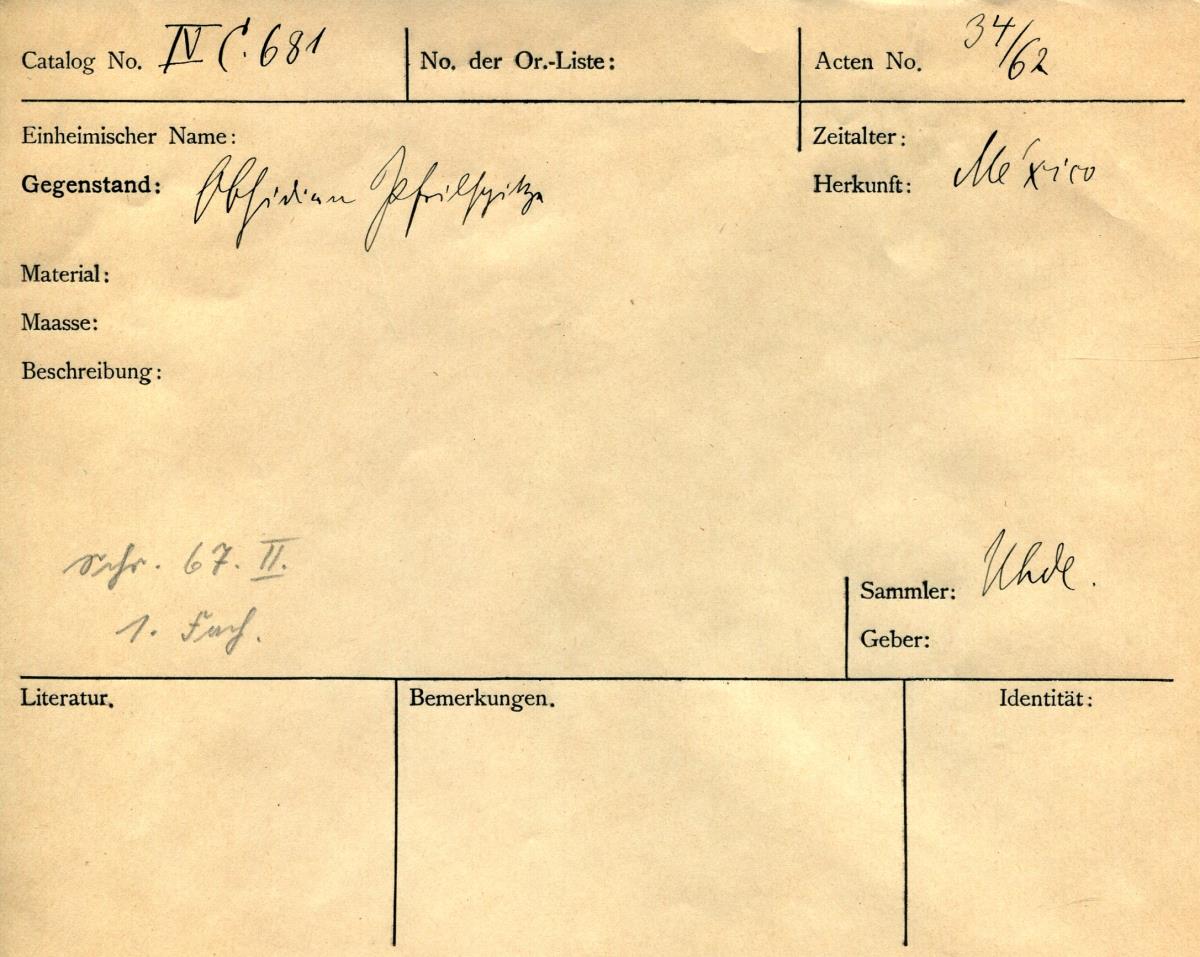 Catalog No. IV C. 681 No. der Or.-Liste: Acten No. 34/62
Einheimischer Name: Zeitalter:
Gegenstand: Obsidian Pfeilspitze Herkunft: México
Material:
Maasse:
Beschreibung:
Schr. 67. II.
Sammler: Uhde.
1. Fach.
Geber:
Literatur. Bemerkungen. Identität: